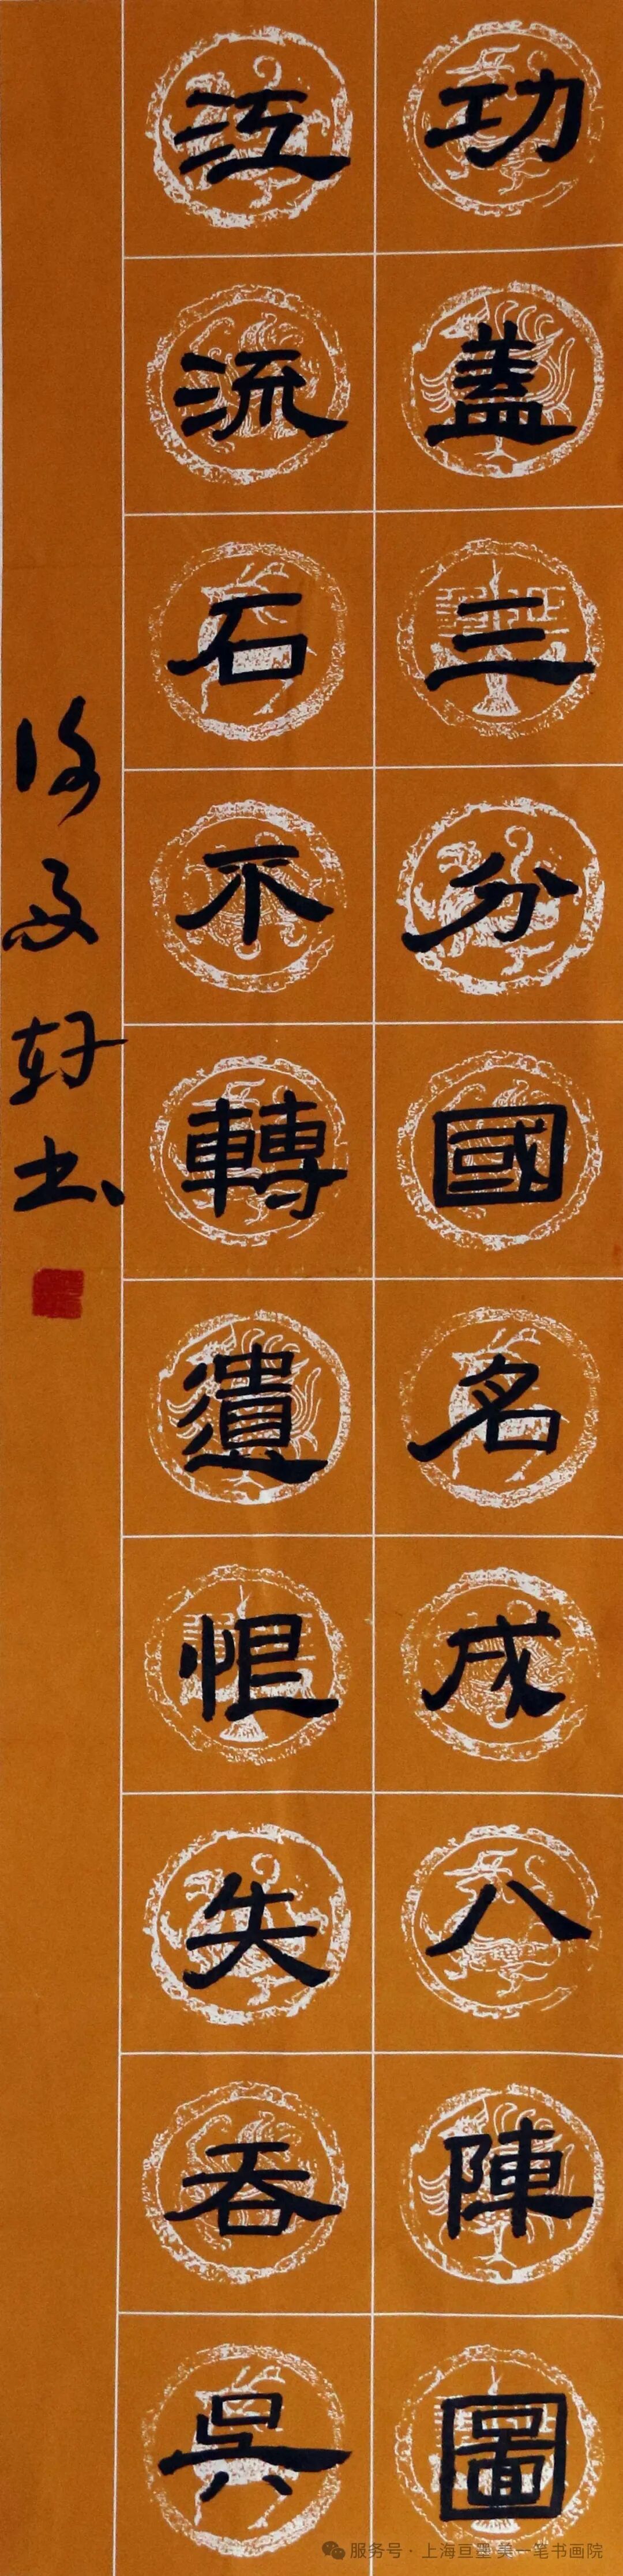 功盖三分國名成八陳圖
江流石不轉遺恨失吞吳
轩书
服务号 · 上海亘墨一笔书画院